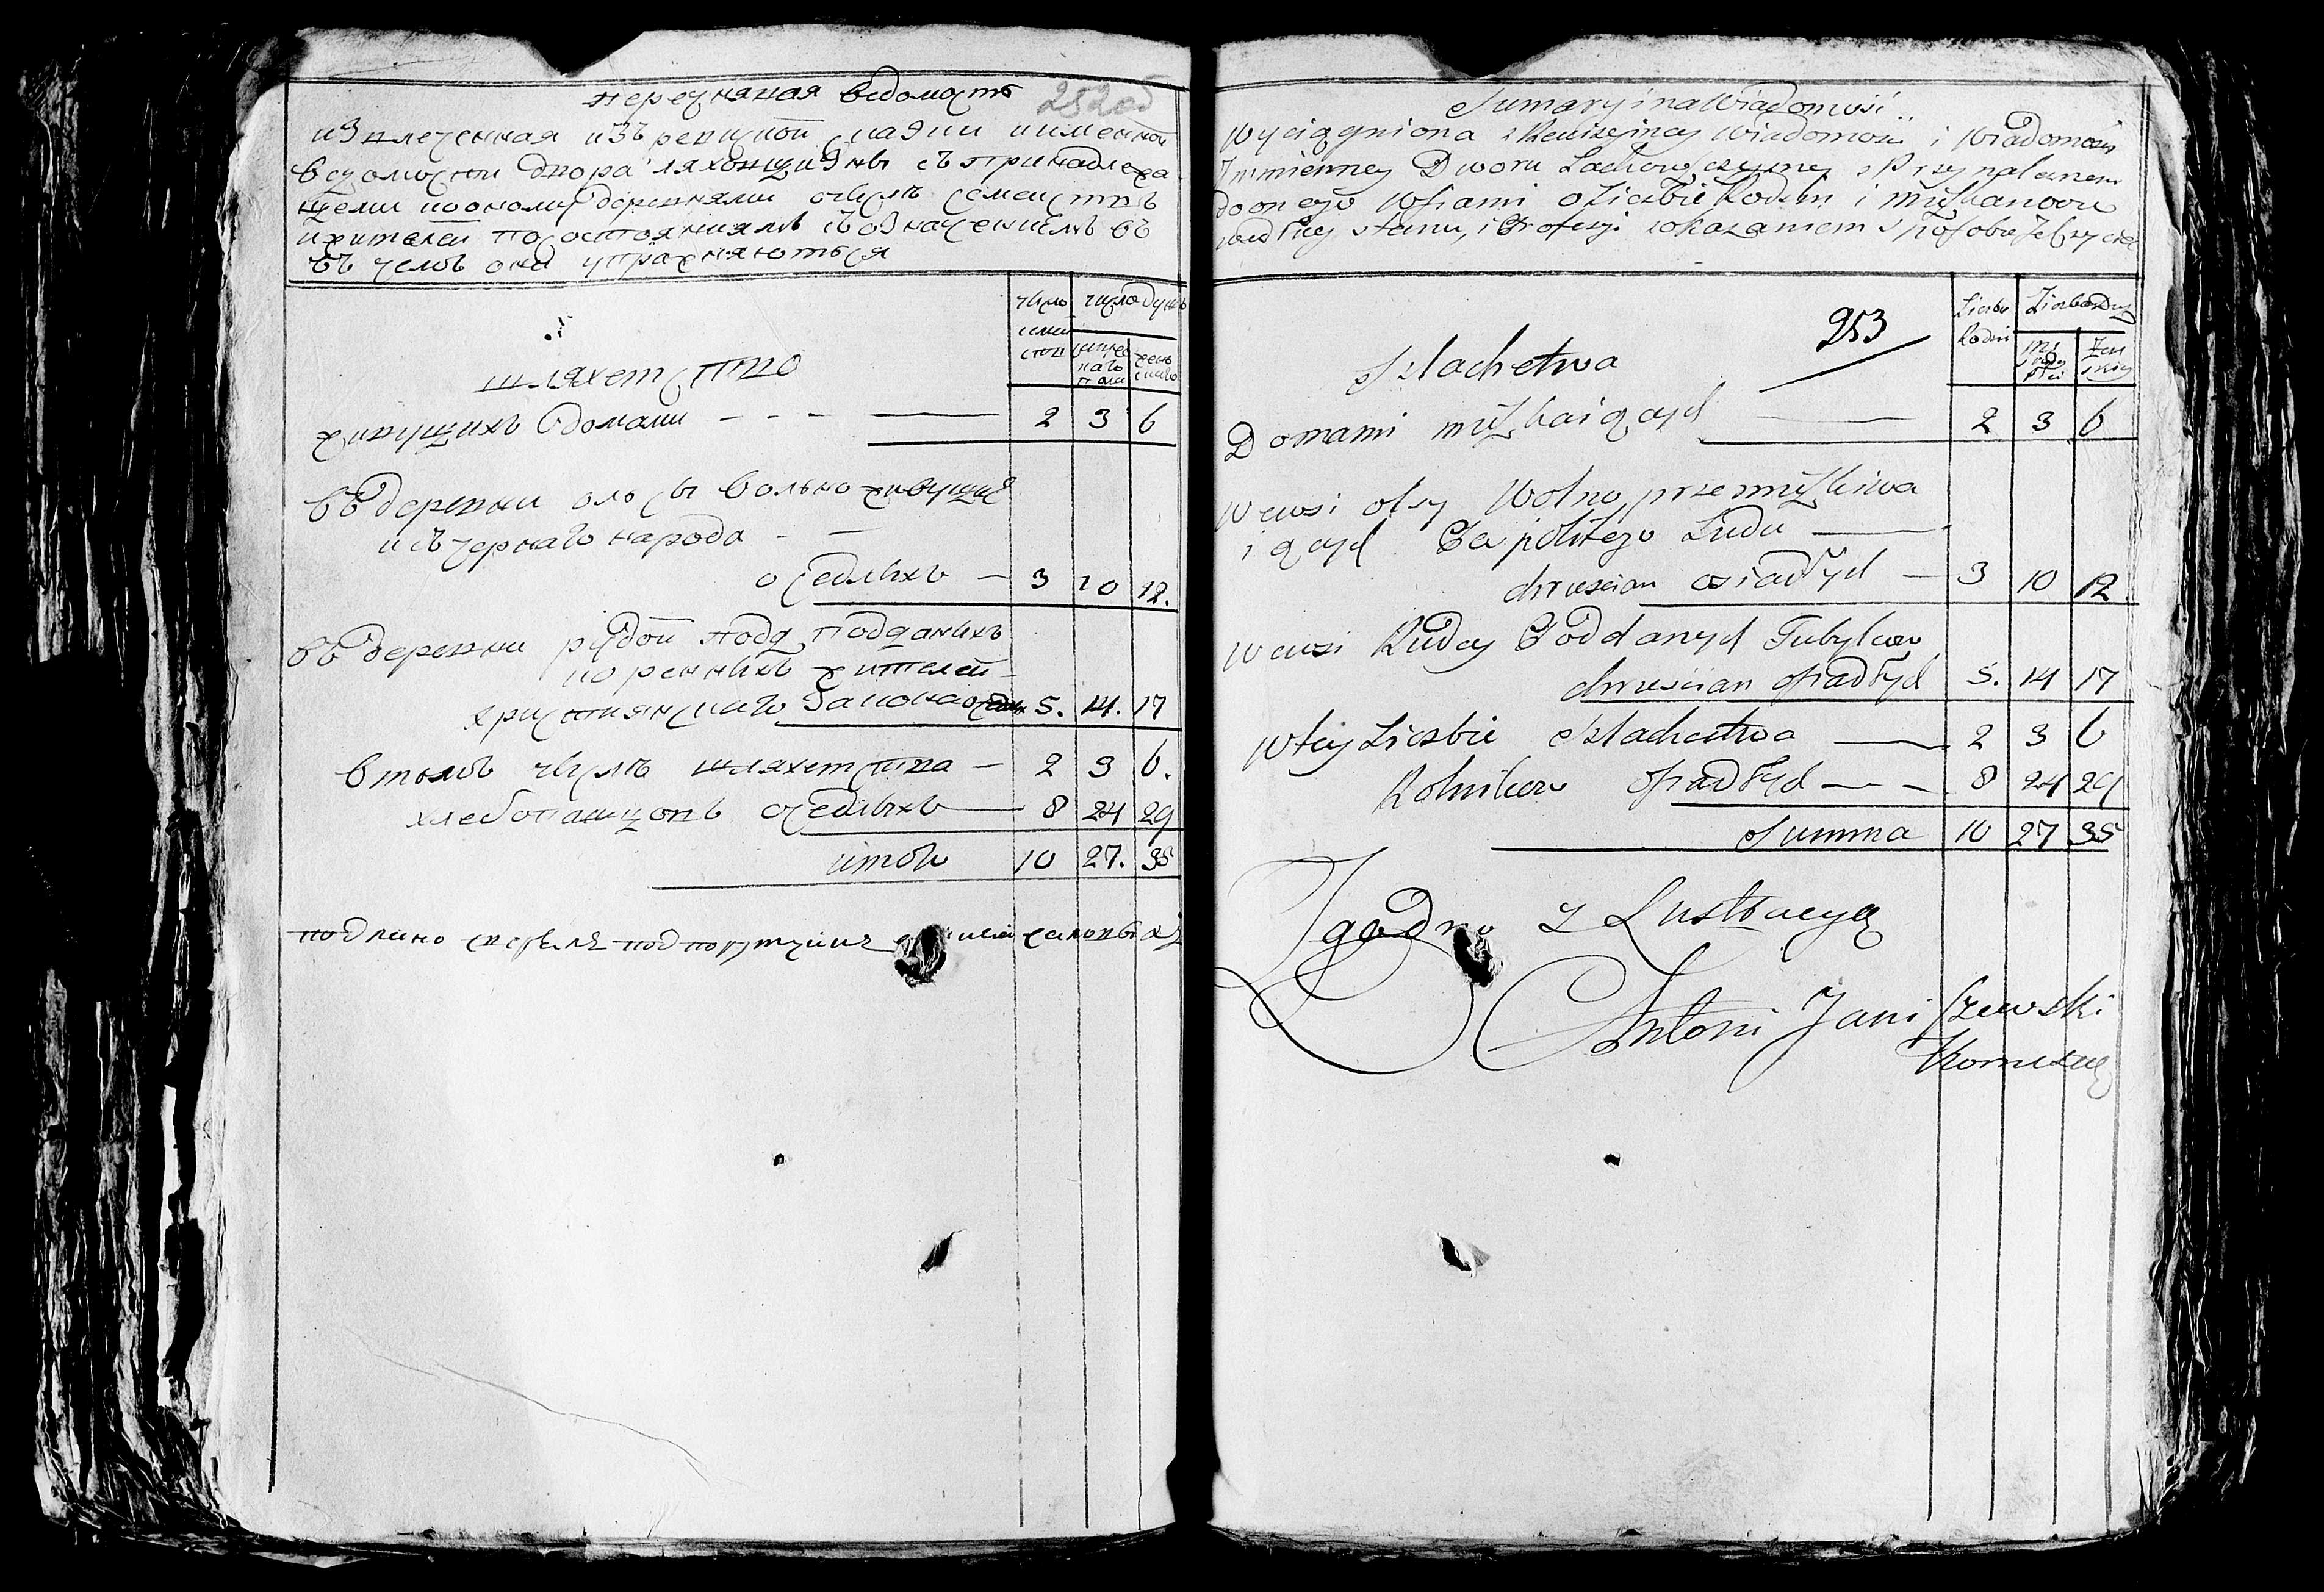 перечняная ведомость 252об
извлеченная изъ ревизкой сказки именной
ведомости двора ляховщизны съ принадлежа
щеми поономи деревнями очисле семействъ
ижителей посостояниямъ съозначениемъ въ
въ чемъ они упражняються
число
семей
ствъ
число душъ
мужес
каго
пола
женс
каго
шляхетство
живущихъ Домами - - - 2 3 6
въ деревни ольсы вольно живущие
исъ чернаго народа - -
оседлыхъ - 3 10 12.
въ деревни рудой подданыхъ
коренныхъ жителей
християнскаго закона 5. 14. 17
втомъ числе шляхетства - 2 3 6.
хлебопашцовъ оседлыхъ 8 24 29
итого 10 27. 35
подлино
Sumaryina Wiadomość
Wyciągniona z Rewizyjney Wiadomości i Wiadomości
Immienney Dworu Lachowszczyzney z Przynależnem
doonego Wsiami oLiczbie Rodzin i miszkancow
według stanu, i Profesyi zokazaniem sposobu Ich życia
253
Liczba
Rodzin
Liczba Dusz
męs
kiey
Płci
Żen
skiey
Szlachetwa
Domami miszkaiących 2 3 6
Wewsi olsy Wolno przemiszkiwa
iących Za politego Ludu
chrześcian osiadłych - 3 10 12
Wewsi Rudey Poddanych Tubylcow
chrześcian osiadłych 5. 14 17
Wtey Liczbie Szlachetwa 2 3 6
Rolnikow osiadłych - - 8 24 29
Summa 10 27 35
Zgodno z Lustracyą
Antoni Janiszewski